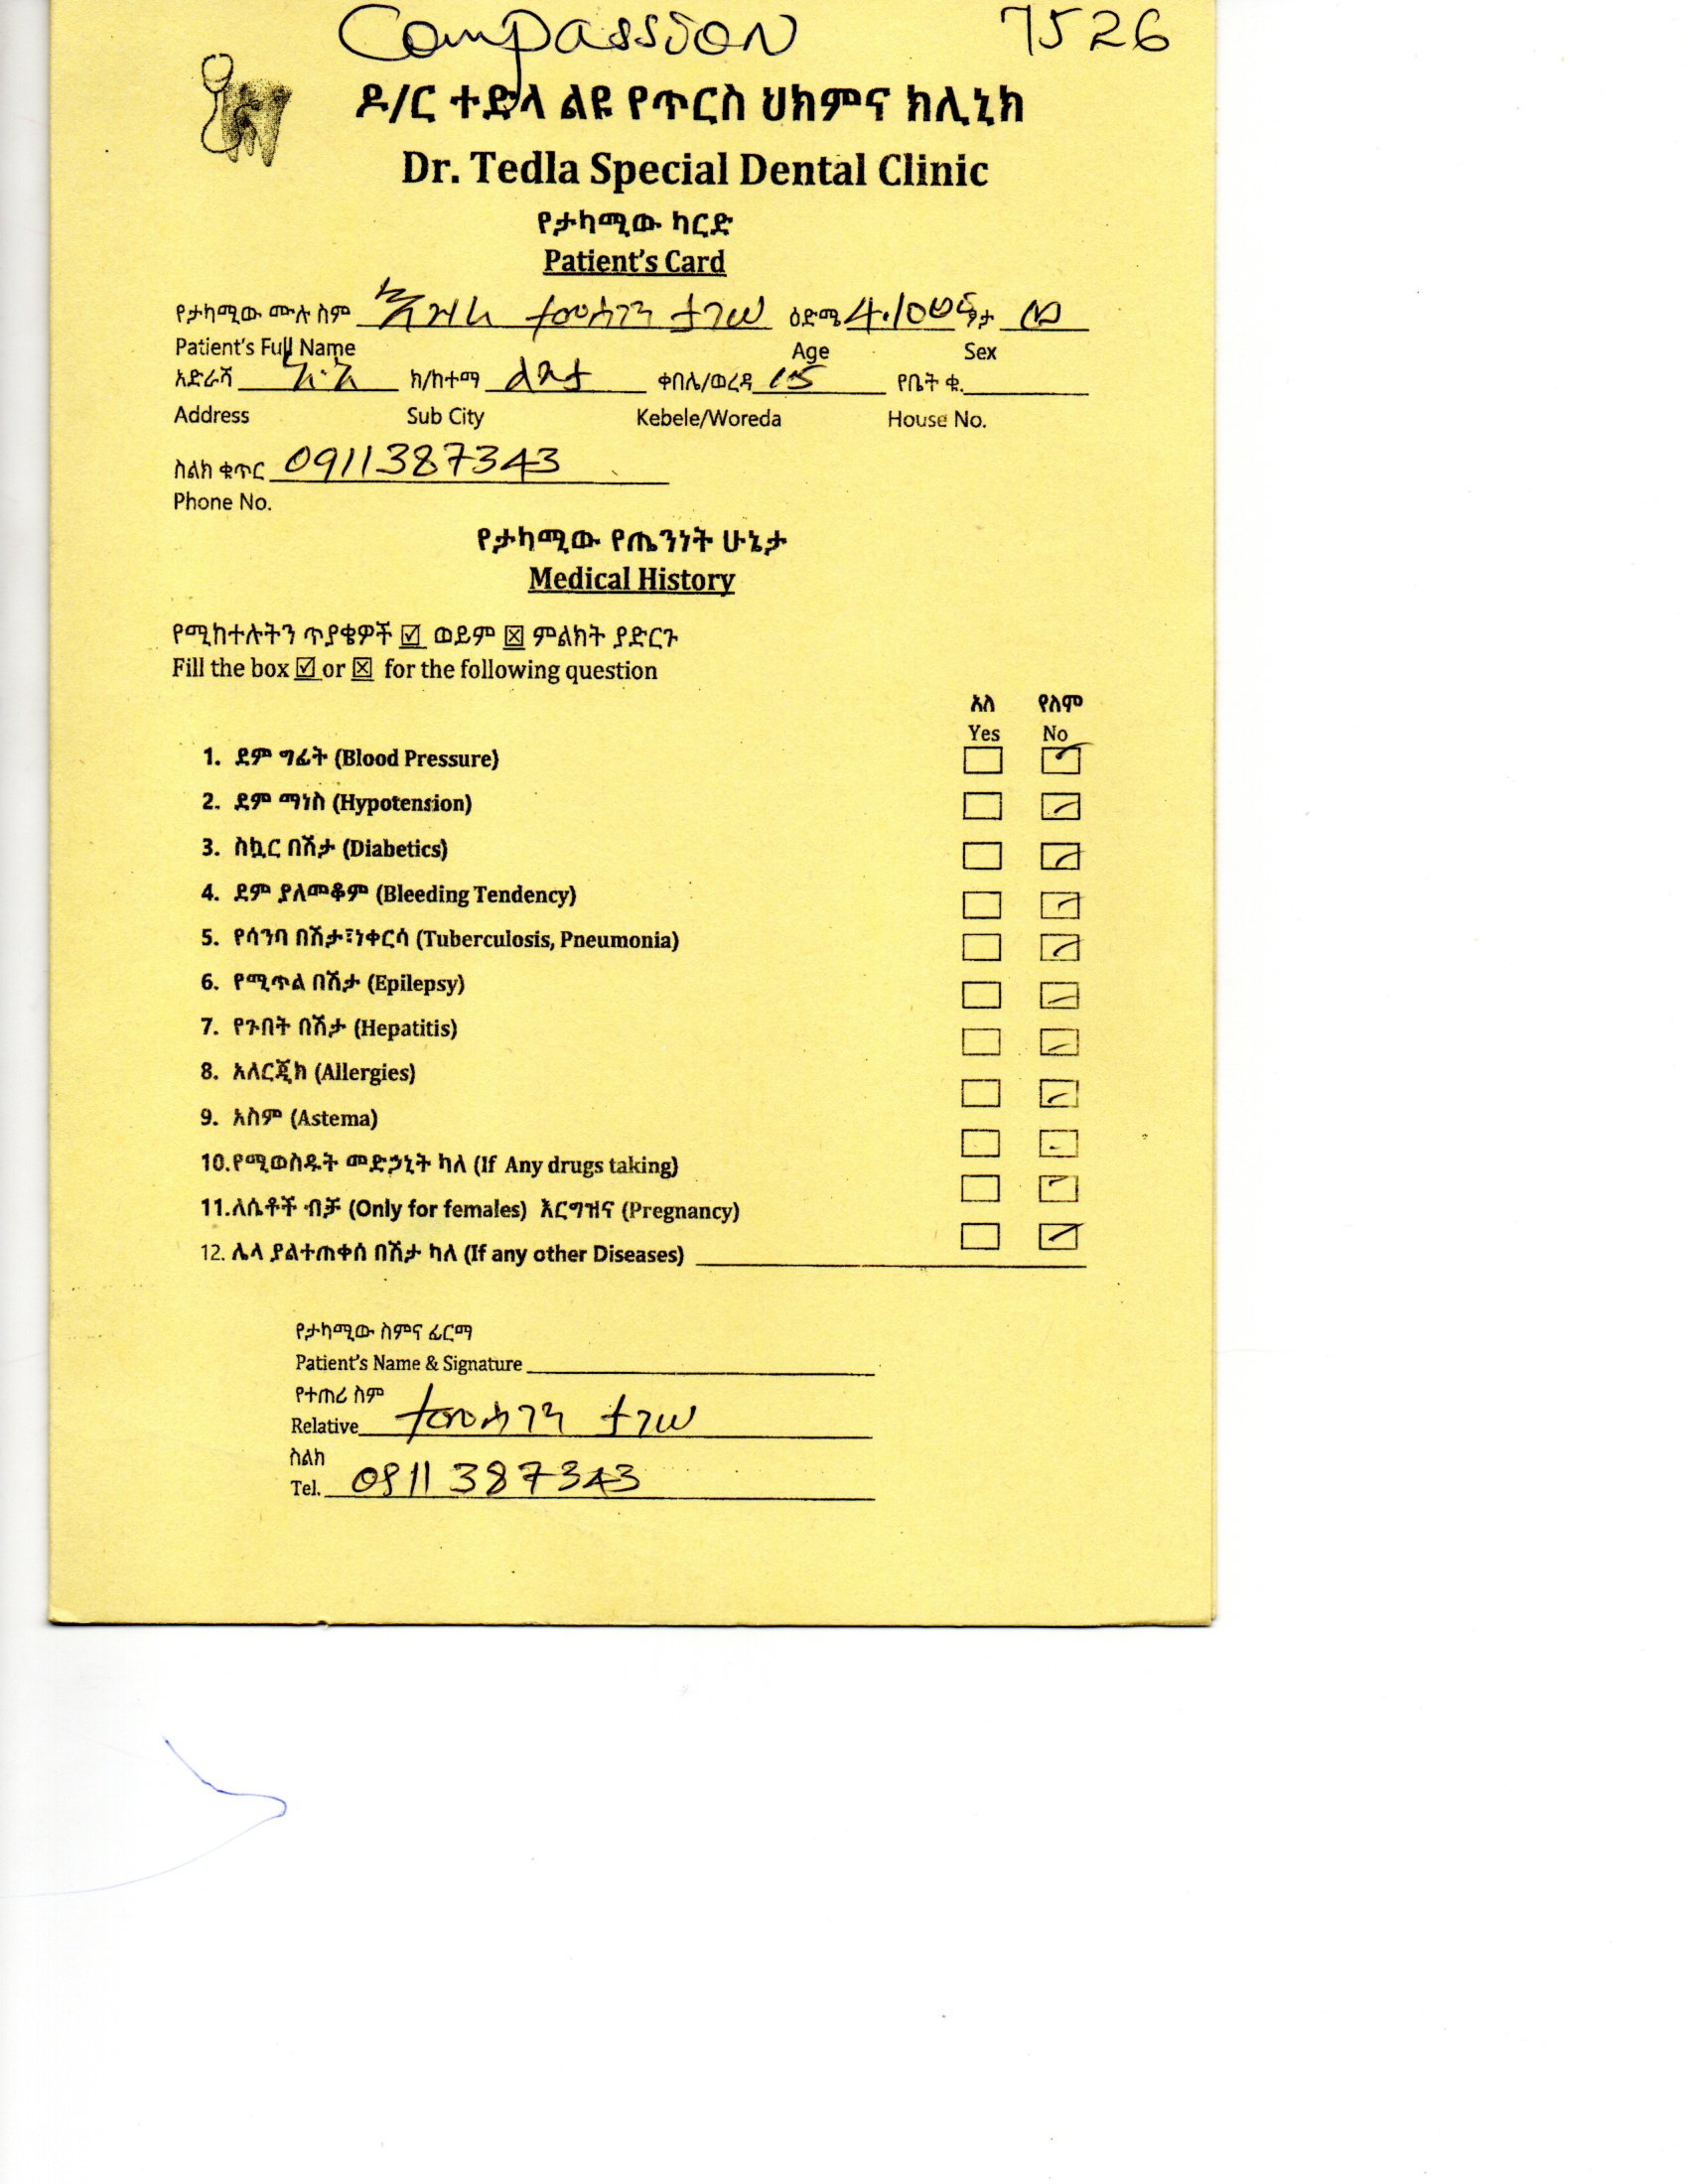 Compassion 7526
ዶ/ር ተድላ ልዩ የጥርስ ህክምና ክሊኒክ
Dr. Tedla Special Dental Clinic
የታካሚው ካርድ
Patient's Card
የታካሚው ሙሉ ስም ተመስገን ታገሠ ዕድሜ ፆታ
Patient's Full Name Age Sex
አድራሻ አ.አ ክ/ከተማ ልደታ ቀበሌ/ወረዳ የቤት ቁ.
Address Sub City Kebele/Woreda House No.
ስልክ ቁጥር 0911387343
Phone No.
የታካሚው የጤንነት ሁኔታ
Medical History
የሚከተሉትን ጥያቄዎች ☑ ወይም ☒ ምልክት ያድርጉ
Fill the box ☑ or ☒ for the following question
አለ የለም
Yes No
1. ደም ግፊት (Blood Pressure)
2. ደም ማነስ (Hypotension)
3. ስኳር በሽታ (Diabetics)
4. ደም ያለመቆም (Bleeding Tendency)
5. የሳንባ በሽታ፣ነቀርሳ (Tuberculosis, Pneumonia)
6. የሚጥል በሽታ (Epilepsy)
7. የጉበት በሽታ (Hepatitis)
8. አለርጂክ (Allergies)
9. አስም (Astema)
10.የሚወስዱት መድኃኒት ካለ (If Any drugs taking)
11.ለሴቶች ብቻ (Only for females) እርግዝና (Pregnancy)
12. ሌላ ያልተጠቀሰ በሽታ ካለ (If any other Diseases)
የታካሚው ስምና ፊርማ
Patient's Name & Signature
የተጠሪ ስም
Relative ተመስገን ታገሠ
ስልክ
Tel. 0911387343